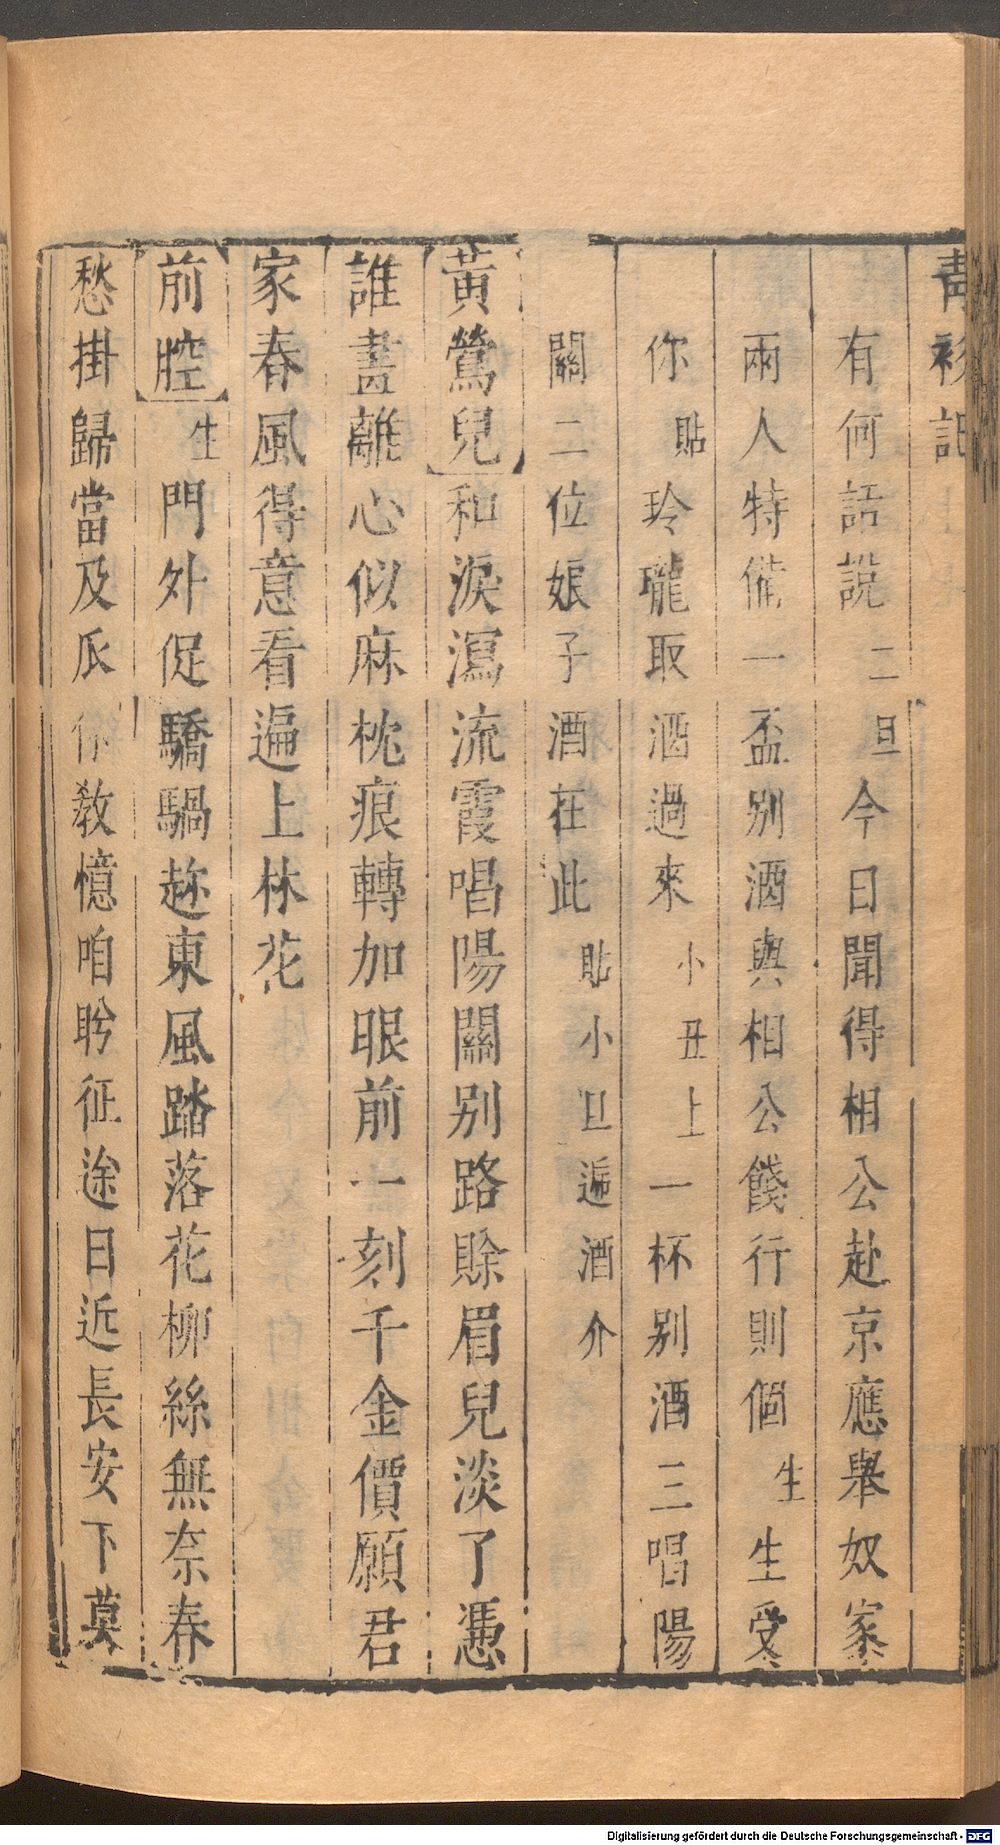 青衫記
有何話說二旦今日聞得相公赴京應舉奴家
兩人特備一盃別酒與相公餞行則個生生受
你貼玲瓏取酒過來小丑上一杯別酒三唱陽
關二位娘子酒在此貼小旦遞酒介
黃鶯兒和淚瀉流霞唱陽關別路賒眉兒淡了憑
誰畫離心似麻枕痕轉加眼前一刻千金價願君
家春風得意看遍上林花
前腔生門外促驕驄趂東風踏落花柳絲無奈春
愁掛歸當及瓜你教憶咱盻征途日近長安下莫
Digitalisierung gefördert durch die Deutsche Forschungsgemeinschaft - DFG